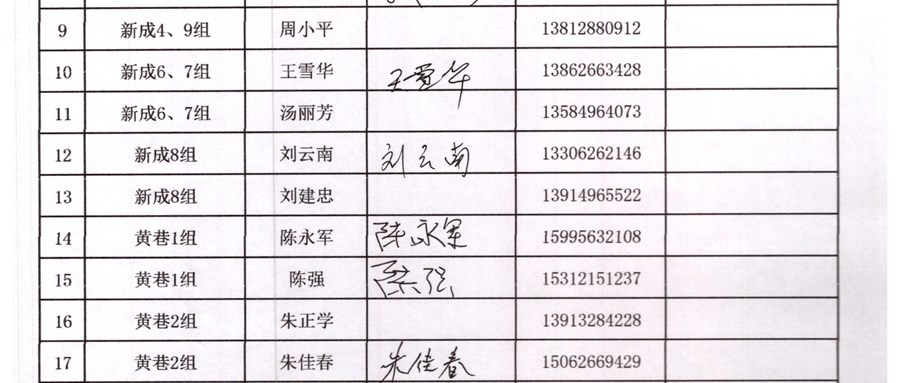 9 新成4、9组 周小平 13812880912
10 新成6、7组 王雪华 王雪华 13862663428
11 新成6、7组 汤丽芳 13584964073
12 新成8组 刘云南 刘云南 13306262146
13 新成8组 刘建忠 13914965522
14 黄巷1组 陈永军 陈永军 15995632108
15 黄巷1组 陈强 陈强 15312151237
16 黄巷2组 朱正学 13913284228
17 黄巷2组 朱佳春 朱佳春 15062669429